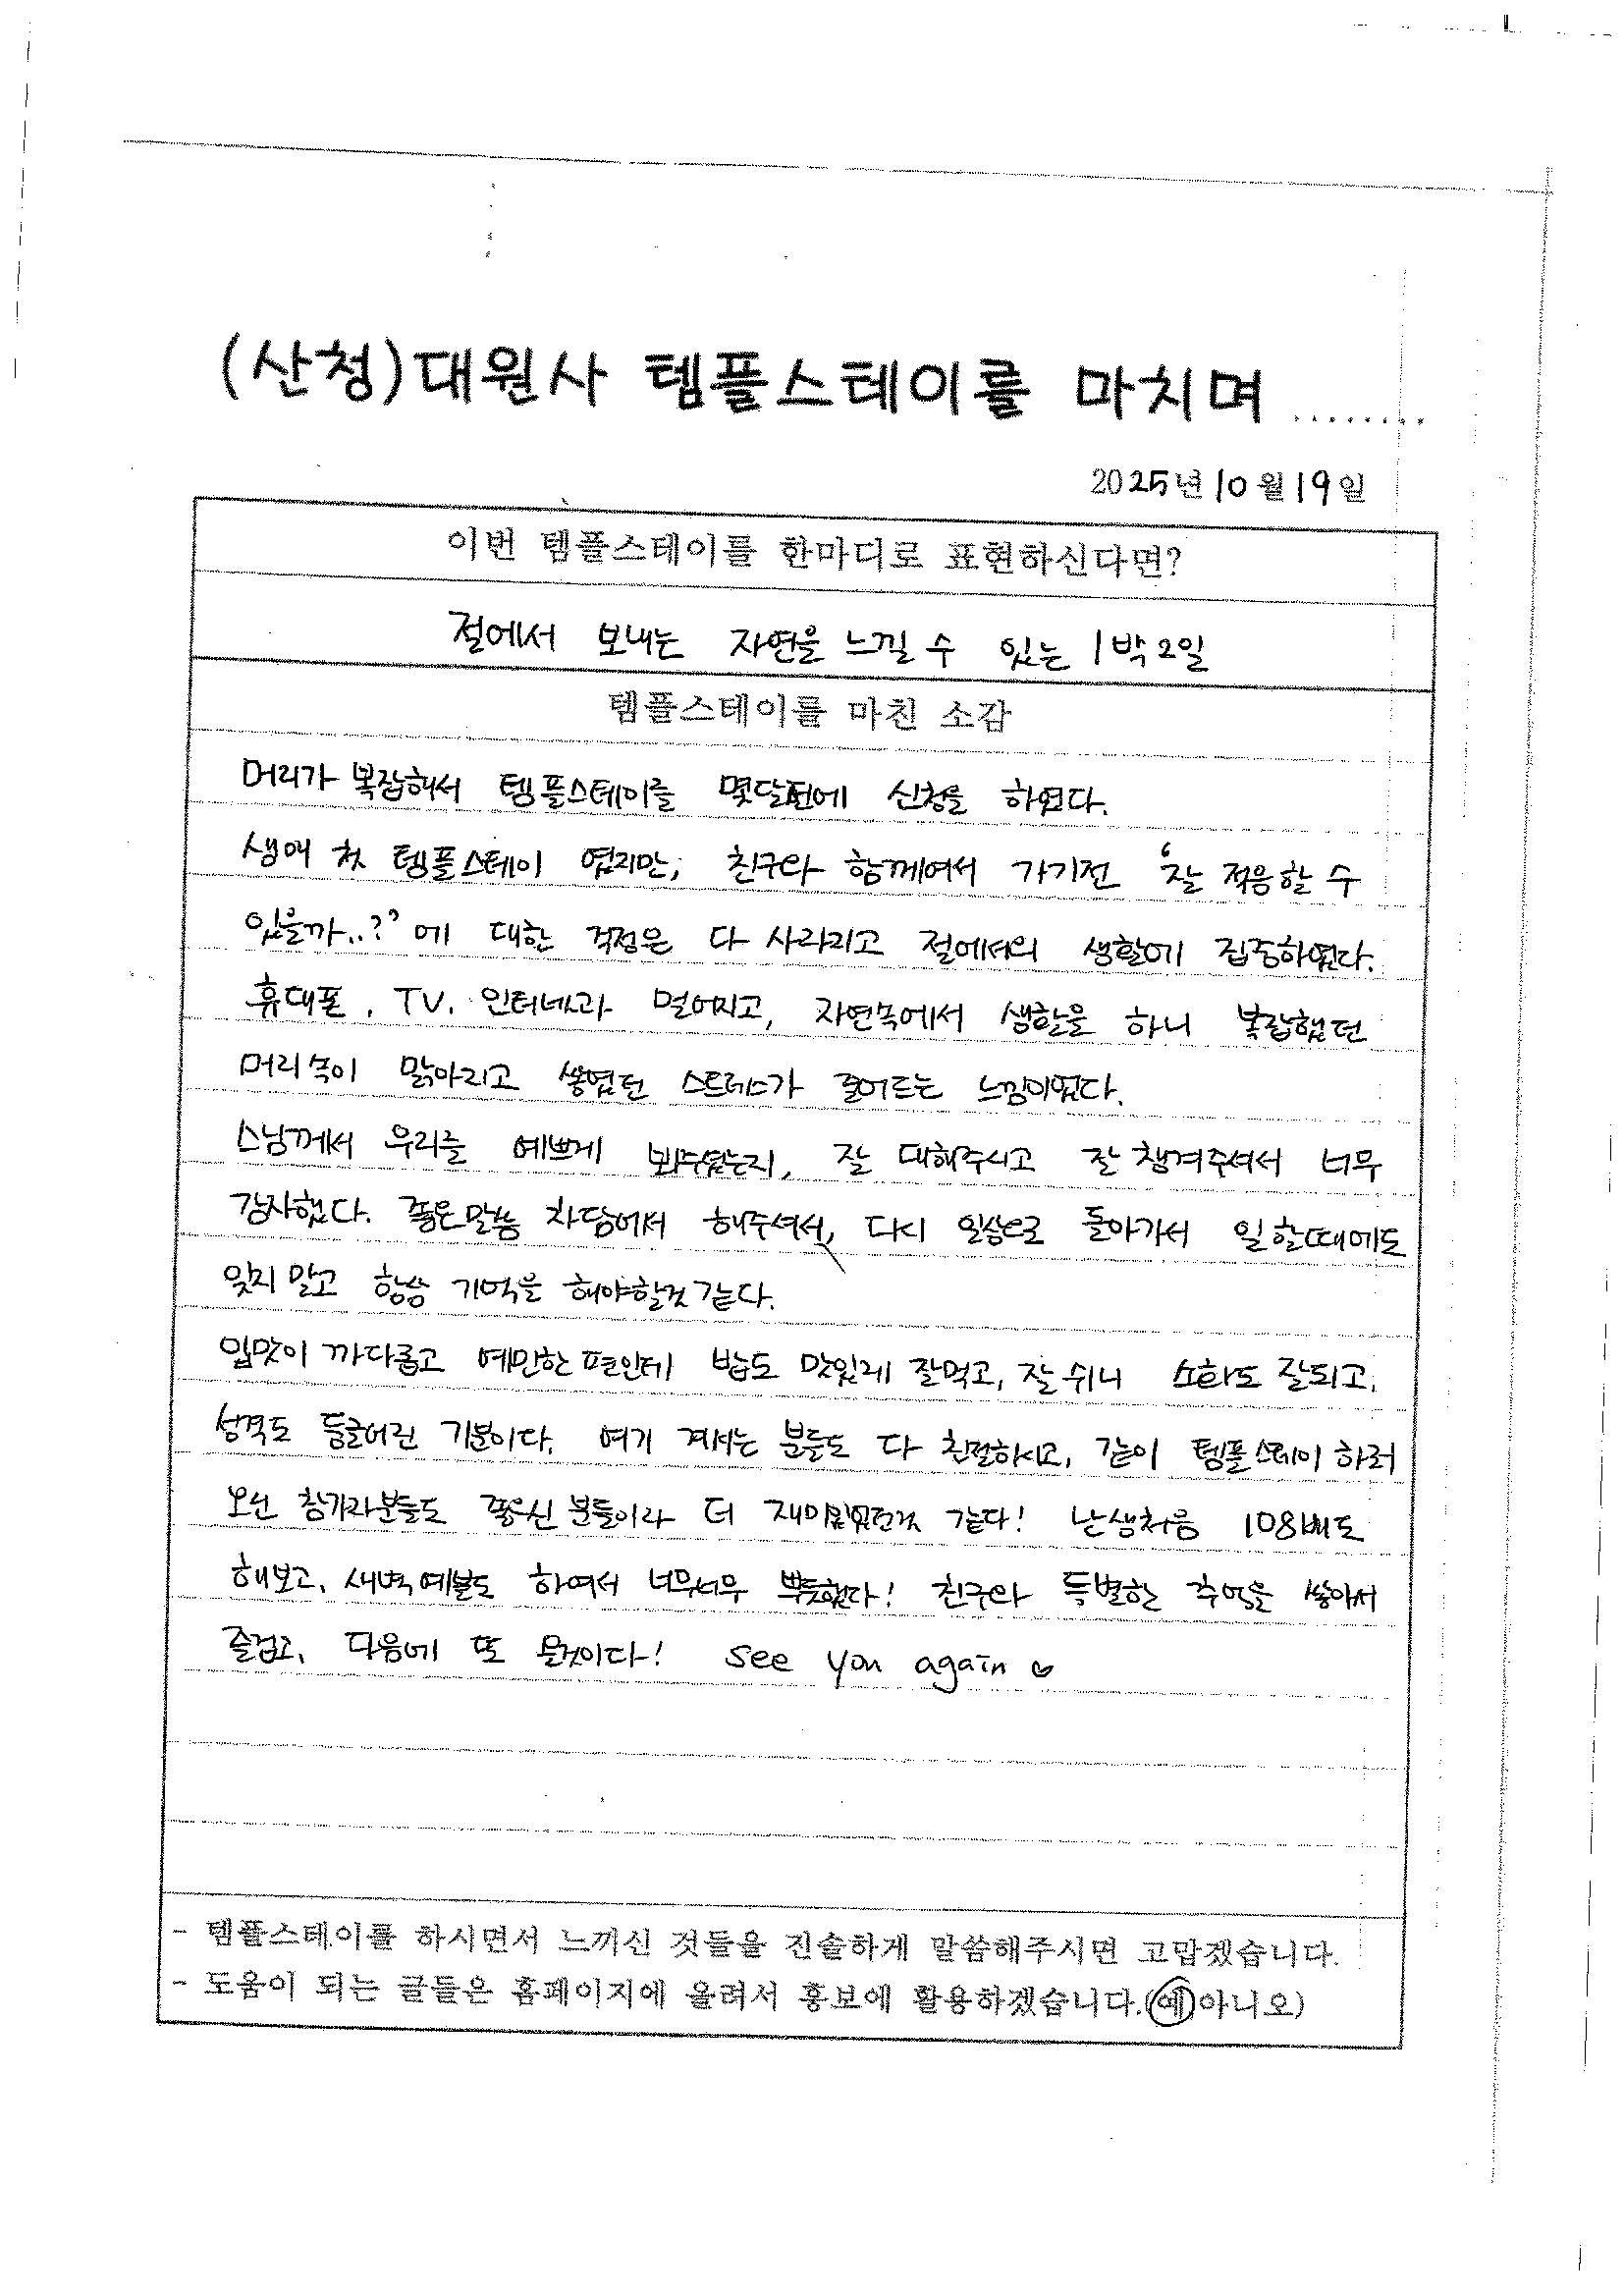 (산청)대원사 템플스테이를 마치며........
2025년 10월 19일
이번 템플스테이를 한마디로 표현하신다면?
절에서 보내는 자연을 느낄 수 있는 1박2일
템플스테이를 마친 소감
머리가 복잡해서 템플스테이를 몇달전에 신청을 하였다.
생애 첫 템플스테이 였지만, 친구와 함께여서 가기전 '잘 적응할 수
있을까..?'에 대한 걱정은 다 사라지고 절에서의 생활에 집중하였다.
휴대폰, TV, 인터넷과 멀어지고, 자연속에서 생활을 하니 복잡했던
머리속이 맑아지고 쌓였던 스트레스가 줄어드는 느낌이였다.
스님께서 우리를 예쁘게 봐주셨는지, 잘 대해주시고 잘 챙겨주셔서 너무
감사했다. 좋은말씀 차담에서 해주셔서, 다시 일상으로 돌아가서 일할때에도
잊지 말고 항상 기억을 해야할것 같다.
입맛이 까다롭고 예민한 편인데 밥도 맛있게 잘먹고, 잘 쉬니 소화도 잘되고,
성격도 둥글어진 기분이다. 여기 계시는 분들도 다 친절하시고, 같이 템플스테이 하러
오신 참가자분들도 좋으신 분들이라 더 재미있었던것 같다! 난생처음 108배도
해보고, 새벽예불도 하여서 너무너무 뿌듯했다! 친구와 특별한 추억을 쌓아서
즐겁고, 다음에 또 올것이다! see you again ♡
- 템플스테이를 하시면서 느끼신 것들을 진솔하게 말씀해주시면 고맙겠습니다.
- 도움이 되는 글들은 홈페이지에 올려서 홍보에 활용하겠습니다.(예)아니오)